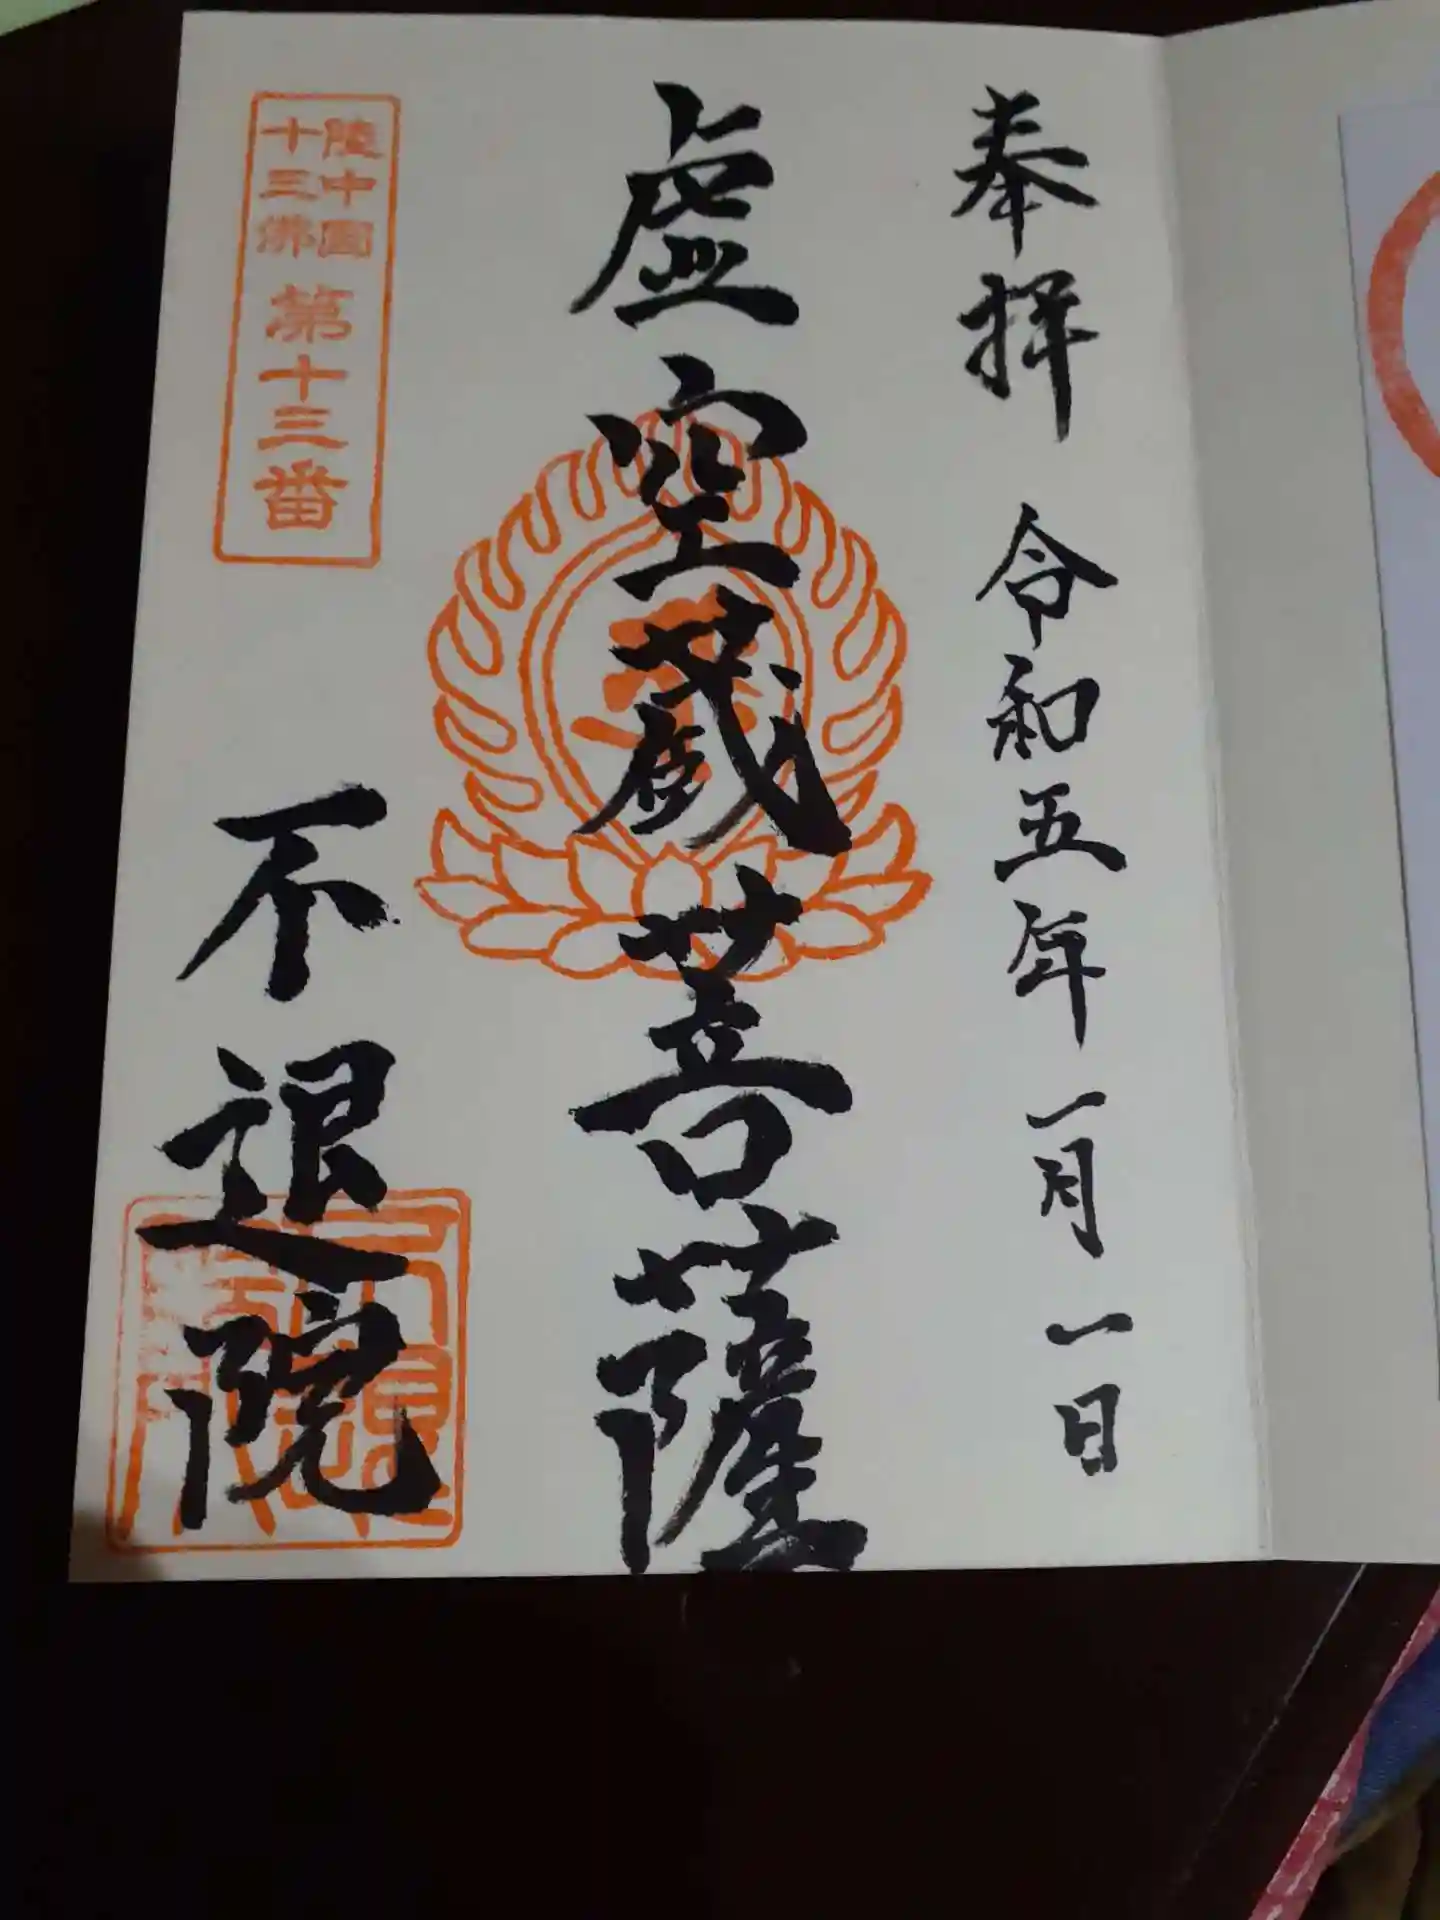 奉拝 令和五年一月一日
虚空蔵菩薩
陸中國
十三佛
第十三番
不退院